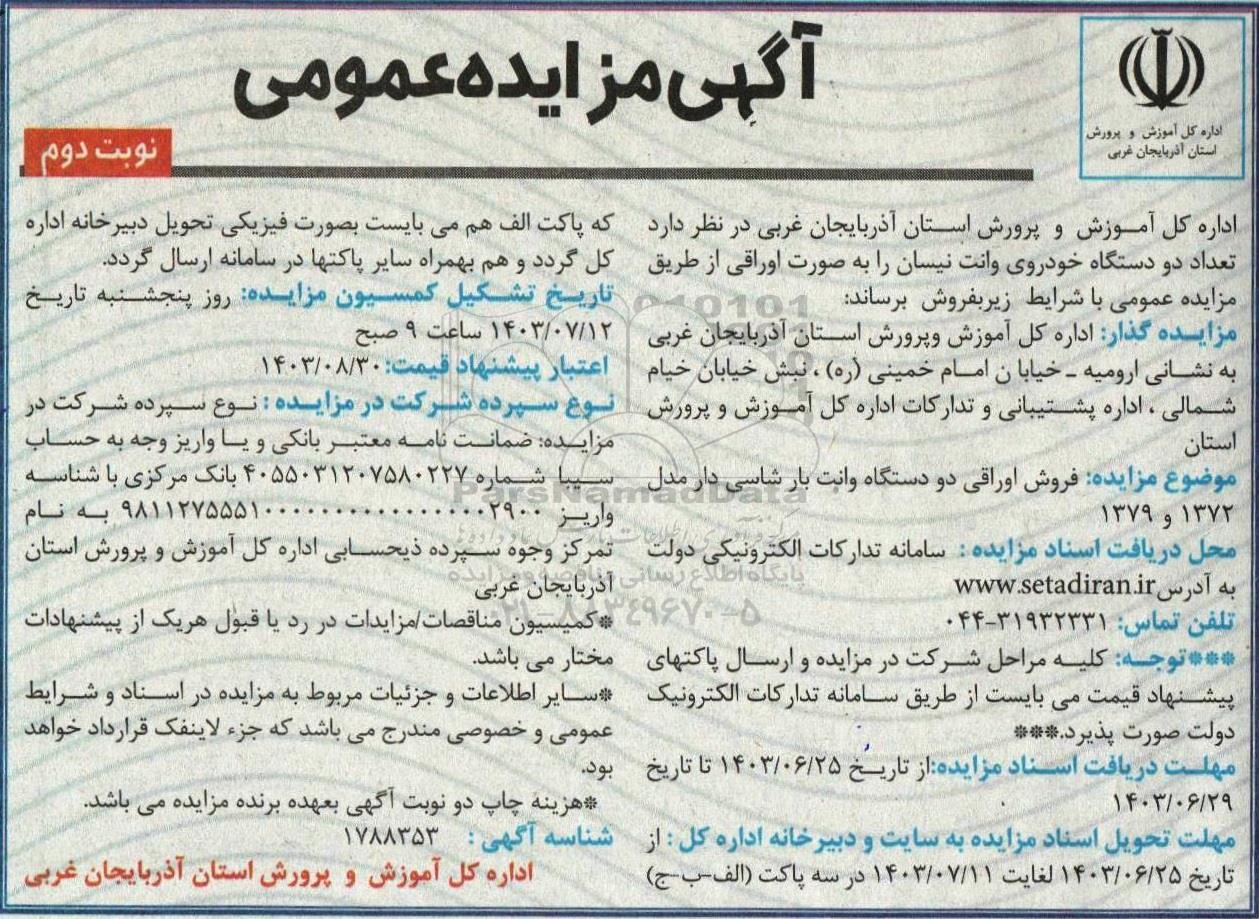 آگهی مزایده عمومی
اداره کل آموزش و پرورش
استان آذربایجان غربی
نوبت دوم
اداره کل آموزش و پرورش استان آذربایجان غربی در نظر دارد
تعداد دو دستگاه خودروی وانت نیسان را به صورت اوراقی از طریق
مزایده عمومی با شرایط زیربفروش برساند:
مزایده گذار: اداره کل آموزش وپرورش استان آذربایجان غربی
به نشانی ارومیه ـ خیابا ن امام خمینی (ره) ، نبش خیابان خیام
شمالی ، اداره پشتیبانی و تدارکات اداره کل آموزش و پرورش
استان
موضوع مزایده: فروش اوراقی دو دستگاه وانت بار شاسی دار مدل
۱۳۷۲ و ۱۳۷۹
محل دریافت اسناد مزایده : سامانه تدارکات الکترونیکی دولت
به آدرس www.setadiran.ir
تلفن تماس: ۳۱۹۳۲۳۳۱-۰۴۴
***توجه: کلیه مراحل شرکت در مزایده و ارسال پاکتهای
پیشنهاد قیمت می بایست از طریق سامانه تدارکات الکترونیک
دولت صورت پذیرد.***
مهلت دریافت اسناد مزایده:از تاریخ ۱۴۰۳/۰۶/۲۵ تا تاریخ
۱۴۰۳/۰۶/۲۹
مهلت تحویل اسناد مزایده به سایت و دبیرخانه اداره کل : از
تاریخ ۱۴۰۳/۰۶/۲۵ لغایت ۱۴۰۳/۰۷/۱۱ در سه پاکت (الف-ب-ج)
که پاکت الف هم می بایست بصورت فیزیکی تحویل دبیرخانه اداره
کل گردد و هم بهمراه سایر پاکتها در سامانه ارسال گردد.
تاریخ تشکیل کمسیون مزایده: روز پنجشنبه تاریخ
۱۴۰۳/۰۷/۱۲ ساعت ۹ صبح
اعتبار پیشنهاد قیمت: ۱۴۰۳/۰۸/۳۰
نوع سپرده شرکت در مزایده : نوع سپرده شرکت در
مزایده: ضمانت نامه معتبر بانکی و یا واریز وجه به حساب
سیبا شماره ۴۰۵۵۰۳۱۲۰۷۵۸۰۲۲۷ بانک مرکزی با شناسه
واریز ۹۸۱۱۲۷۵۵۵۱۰۰۰۰۰۰۰۰۰۰۰۰۰۰۰۰۰۲۹۰۰ به نام
تمرکز وجوه سپرده ذیحسابی اداره کل آموزش و پرورش استان
آذربایجان غربی
*کمیسیون مناقصات/مزایدات در رد یا قبول هریک از پیشنهادات
مختار می باشد.
*سایر اطلاعات و جزئیات مربوط به مزایده در اسناد و شرایط
عمومی و خصوصی مندرج می باشد که جزء لاینفک قرارداد خواهد
بود.
*هزینه چاپ دو نوبت آگهی بعهده برنده مزایده می باشد.
شناسه آگهی : ۱۷۸۸۳۵۳
اداره کل آموزش و پرورش استان آذربایجان غربی
ParsNamadData
پایگاه اطلاع رسانی مناقصه و مزایده
۰۲۱-۸۸۳۴۹۶۷۰-۵